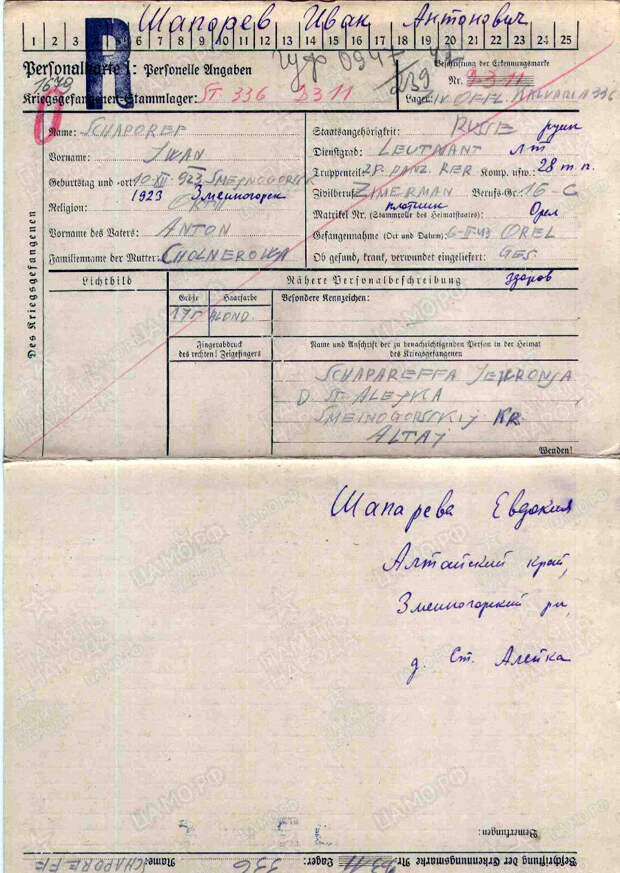 Шапарев Иван Антонович
1 2 3 4 5 6 7 8 9 10 11 12 13 14 15 16 17 18 19 20 21 22 23 24 25
R
Personalkarte I: Personelle Angaben
Beschriftung der Erkennungsmarke
1679
0947
239
Nr. 2311
Kriegsgefangenen-Stammlager: ST. 336 2311
Lager: OFFL. KALVARIA 336
Des Kriegsgefangenen
Name: SCHAPOREF
Vorname: IWAN
Geburtstag und -ort: 10-XII-923 SMEJNOGORSK
1923 Змеиногорск
Religion:
Vorname des Vaters: ANTON
Familienname der Mutter: CHOLNEROWA
Staatsangehörigkeit: RUSE русск
Dienstgrad: LEUTNANT л-т
Truppenteil: 28. PANZ. RER Komp. usw.: 28 т.п.
Zivilberuf: ZIMERMAN Berufs-Gr.: 16-C
плотник
Matrikel Nr. (Stammrolle des Heimatstaates): Орел
Gefangennahme (Ort und Datum): OREL
Ob gesund, krank, verwundet eingeliefert: GES.
здоров
Lichtbild
Nähere Personalbeschreibung
Größe
Haarfarbe
Besondere Kennzeichen:
175
BLOND.
Fingerabdruck
des rechten! Zeigefingers
Name und Anschrift der zu benachrichtigenden Person in der Heimat
des Kriegsgefangenen
SCHAPAREFFA
D ST. ALEJKA
SMEINOGORSKIJ KR
ALTAJ
Wenden!
Шапарева Евдокия
Алтайский край,
Змеиногорский рн,
д. Ст. Алейка
Bemerkungen:
Beschriftung der Erkennungsmarke Nr. 2311 Lager: 336 Name: SCHAPOREFF